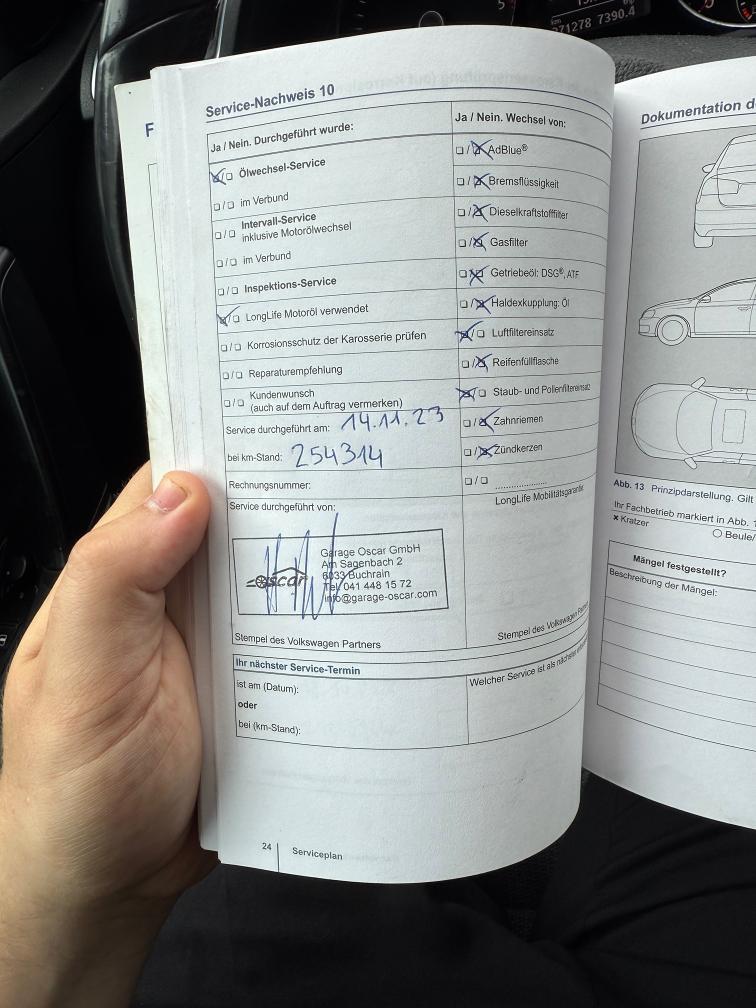 5
km
271278 7390.4
F
Service-Nachweis 10
Ja / Nein. Durchgeführt wurde:
Ölwechsel-Service
im Verbund
Intervall-Service
inklusive Motorölwechsel
im Verbund
Inspektions-Service
LongLife Motoröl verwendet
Korrosionsschutz der Karosserie prüfen
Reparaturempfehlung
Kundenwunsch
(auch auf dem Auftrag vermerken)
Service durchgeführt am: 14.11.23
bei km-Stand: 254314
Rechnungsnummer:
Service durchgeführt von:
oscar
Garage Oscar GmbH
Am Sagenbach 2
6033 Buchrain
Tel. 041 448 15 72
info@garage-oscar.com
Stempel des Volkswagen Partners
Ja / Nein. Wechsel von:
AdBlue®
Bremsflüssigkeit
Dieselkraftstofffilter
Gasfilter
Getriebeöl: DSG®, ATF
Haldexkupplung: Öl
Luftfiltereinsatz
Reifenfüllflasche
Staub- und Pollenfiltereinsatz
Zahnriemen
Zündkerzen
LongLife Mobilitätsgarantie
Stempel des Volkswagen Partn
Ihr nächster Service-Termin
ist am (Datum):
oder
bei (km-Stand):
Welcher Service ist als nächster
24 Serviceplan
Dokumentation d
Abb. 13 Prinzipdarstellung. Gilt
Ihr Fachbetrieb markiert in Abb. 1
x Kratzer
Beule/
Mängel festgestellt?
Beschreibung der Mängel: